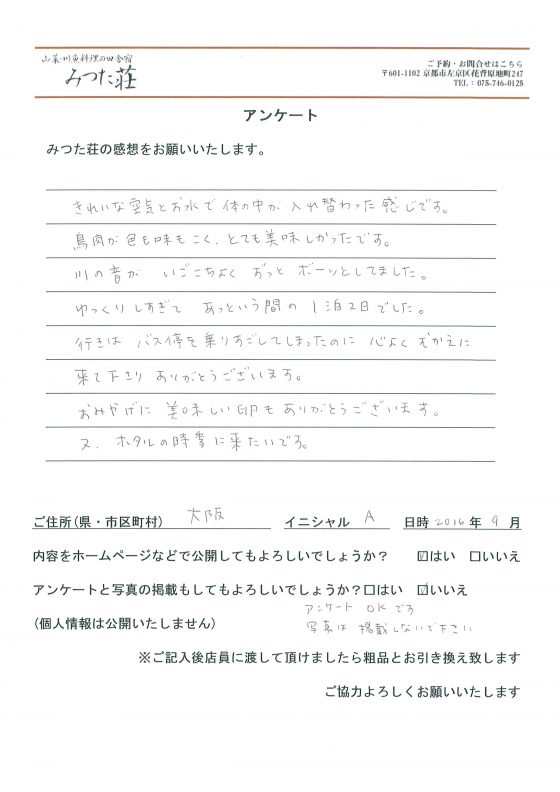 山菜・川魚料理の田舎宿
みつた荘
ご予約・お問合せはこちら
〒601-1102 京都市左京区花背原地町247
TEL：075-746-0128
アンケート
みつた荘の感想をお願いいたします。
きれいな空気とお水で体の中が入れ替わった感じです。
鳥肉が色も味もこく、とても美味しかったです。
川の音が いごこちよく ずっと ボーッとしてました。
ゆっくりしすぎて あっという間の 1泊2日でした。
行きは バス停を乗りすごしてしまったのに 心よく むかえに
来て下さり ありがとうございます。
おみやげに 美味しい卵もありがとうございます。
又、ホタルの時季に来たいです。
ご住所(県・市区町村) 大阪 イニシャル A 日時 2016年 9月
内容をホームページなどで公開してもよろしいでしょうか？ ☑はい □いいえ
アンケートと写真の掲載もしてもよろしいでしょうか？□はい ☑いいえ
アンケート OKです
(個人情報は公開いたしません) 写真は 掲載しないで下さい
※ご記入後店員に渡して頂けましたら粗品とお引き換え致します
ご協力よろしくお願いいたします